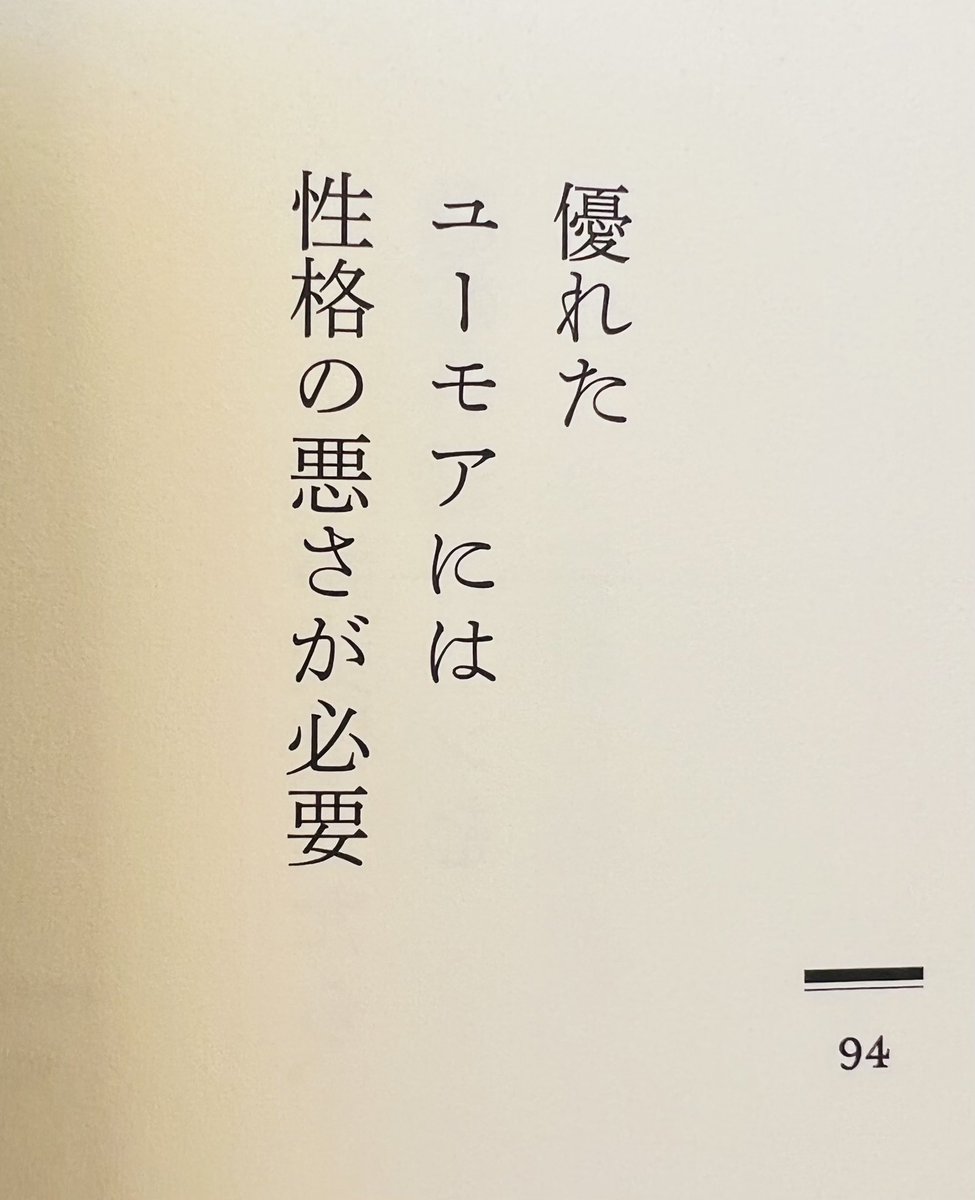 優れた
ユーモアには
性格の悪さが必要
94